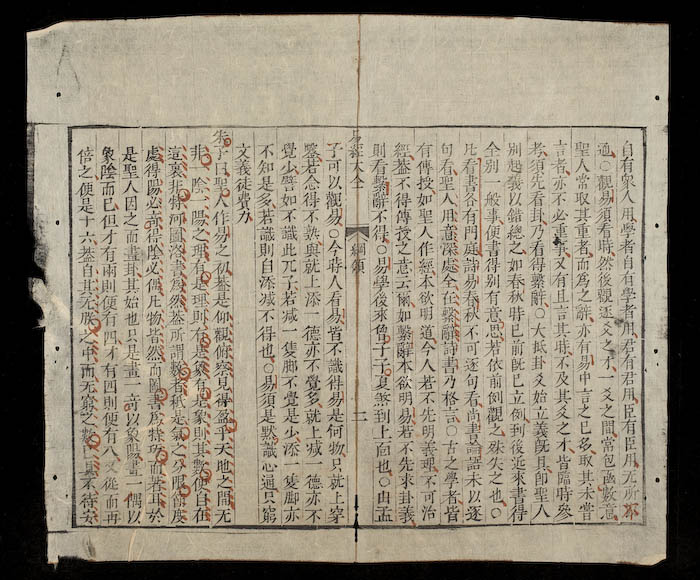 自有衆人用學者自有學者用君有君用臣有臣用无所不
通○觀易須看時然後觀逐爻之才一爻之間常包涵數意
聖人常取其重者而爲之辭亦有易中言之已多取其未嘗
言者亦不必重事又有且言其時不及其爻之才皆臨時參
考須先看卦乃看得繫辭○大抵卦爻始立義既具即聖人
別起義以錯綜之如春秋時已前既已立例到後近來書得
全別一般事便書得別有意思若依前例觀之殊失之也○
凡看書各有門庭詩易春秋不可逐句看尚書論語可以逐
句看聖人用意深處全在繫辭詩書乃格言○古之學者皆
有傳授如聖人作經本欲明道今人若不先明義理不可治
經蓋不得傳授之意云爾如繫辭本欲明易若不先求卦義
則看繫辭不得○易學後來曾子子夏煞到上面也○由孟
易經大全 綱領 二
子可以觀易○今時人看易皆不識得易是何物只就上穿
鑿若念得不熟與就上添一德亦不覺多就上減一德亦不
覺少譬如不識此兀子若減一隻脚不覺是少添一隻脚亦
不知是多若識則自添減不得也○易須是默識心通只窮
文義徒費力
朱子曰聖人作易之初蓋是仰觀俯察見得盈乎天地之間无
非一陰一陽之理有是理則有是象有是象則其數便自在
這裏非特河圖洛書爲然蓋所謂數者秪是氣之分限節度
處得陽必奇得陰必偶凡物皆然而圖書爲特巧而著耳於
是聖人因之而畫卦其始也只是畫一奇以象陽畫一偶以
象陰而已但才有兩則便有四才有四則便有八又從而再
倍之便是十六蓋自其无朕之中而无窮之數已具不待安